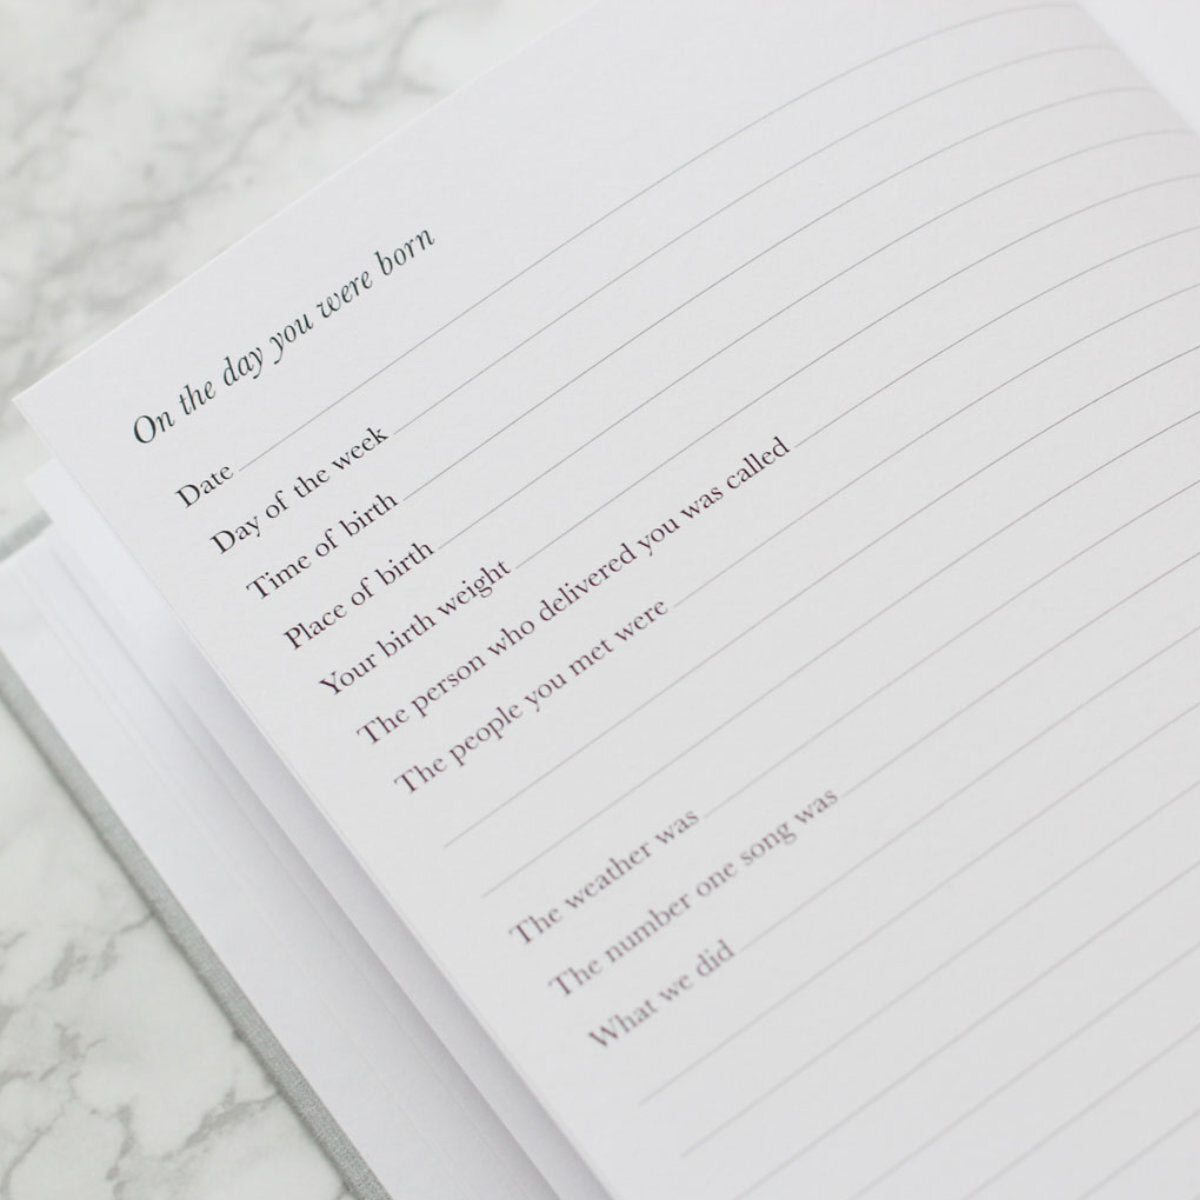 On the day you were born
Date
Day of the week
Time of birth
Place of birth
Your birth weight
The person who delivered you was called
The people you met were
The weather was
The number one song was
What we did